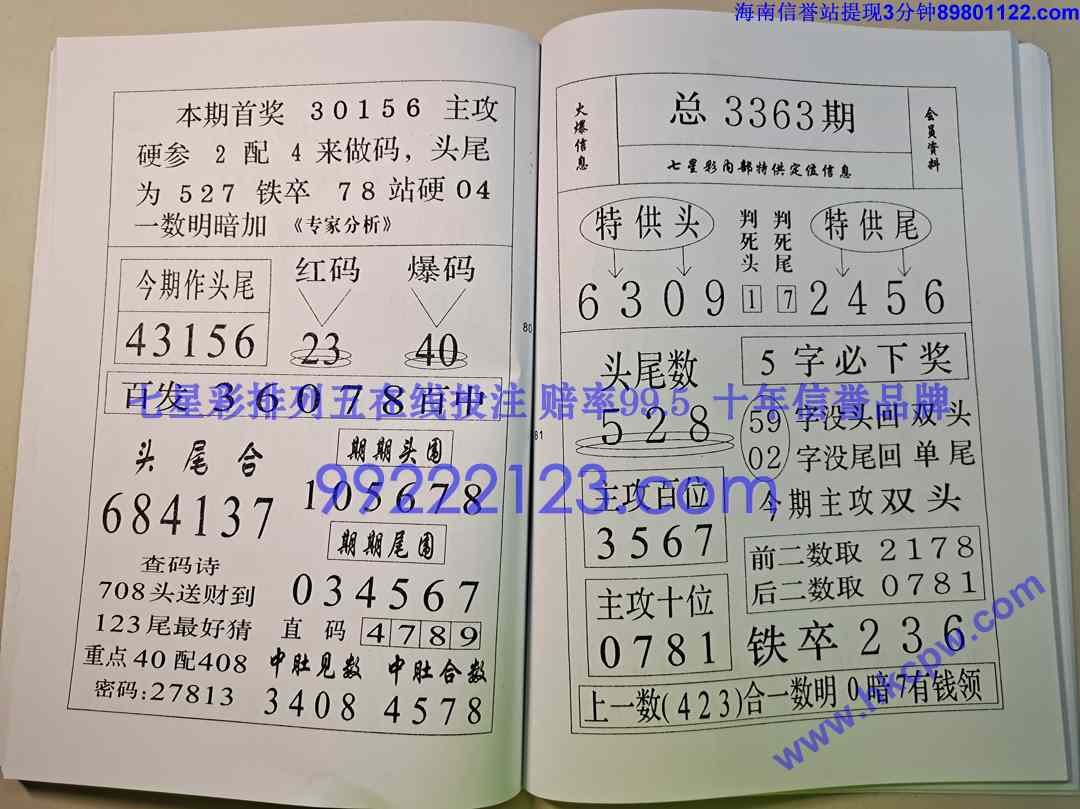 海南信誉站提现3分钟89801122.com
本期首奖 30156 主攻
硬参 2 配 4 来做码，头尾
为 527 铁卒 78站硬04
一数明暗加 《专家分析》
今期作头尾
43156
红码
23
爆码
40
百发 36078百中
七星彩排列五在线投注 赔率99.5 十年信誉品牌
头尾合
684137
期期头围
105678
期期尾围
034567
99222123.com
查码诗
708头送财到
123尾最好猜
重点40配408
密码:27813
直码 4789
中肚见数
3408
中肚合数
4578
80
81
火爆信息
总3363期
七星彩内部特供定位信息
会员资料
特供头
6309
判死头
1
判死尾
7
特供尾
2456
头尾数
528
5字必下奖
59字没头回双头
02字没尾回单尾
今期主攻双头
主攻百位
3567
前二数取 2178
后二数取 0781
主攻十位
0781
铁卒236
上一数(423)合一数明0暗7有钱领
www.hkcpw.com